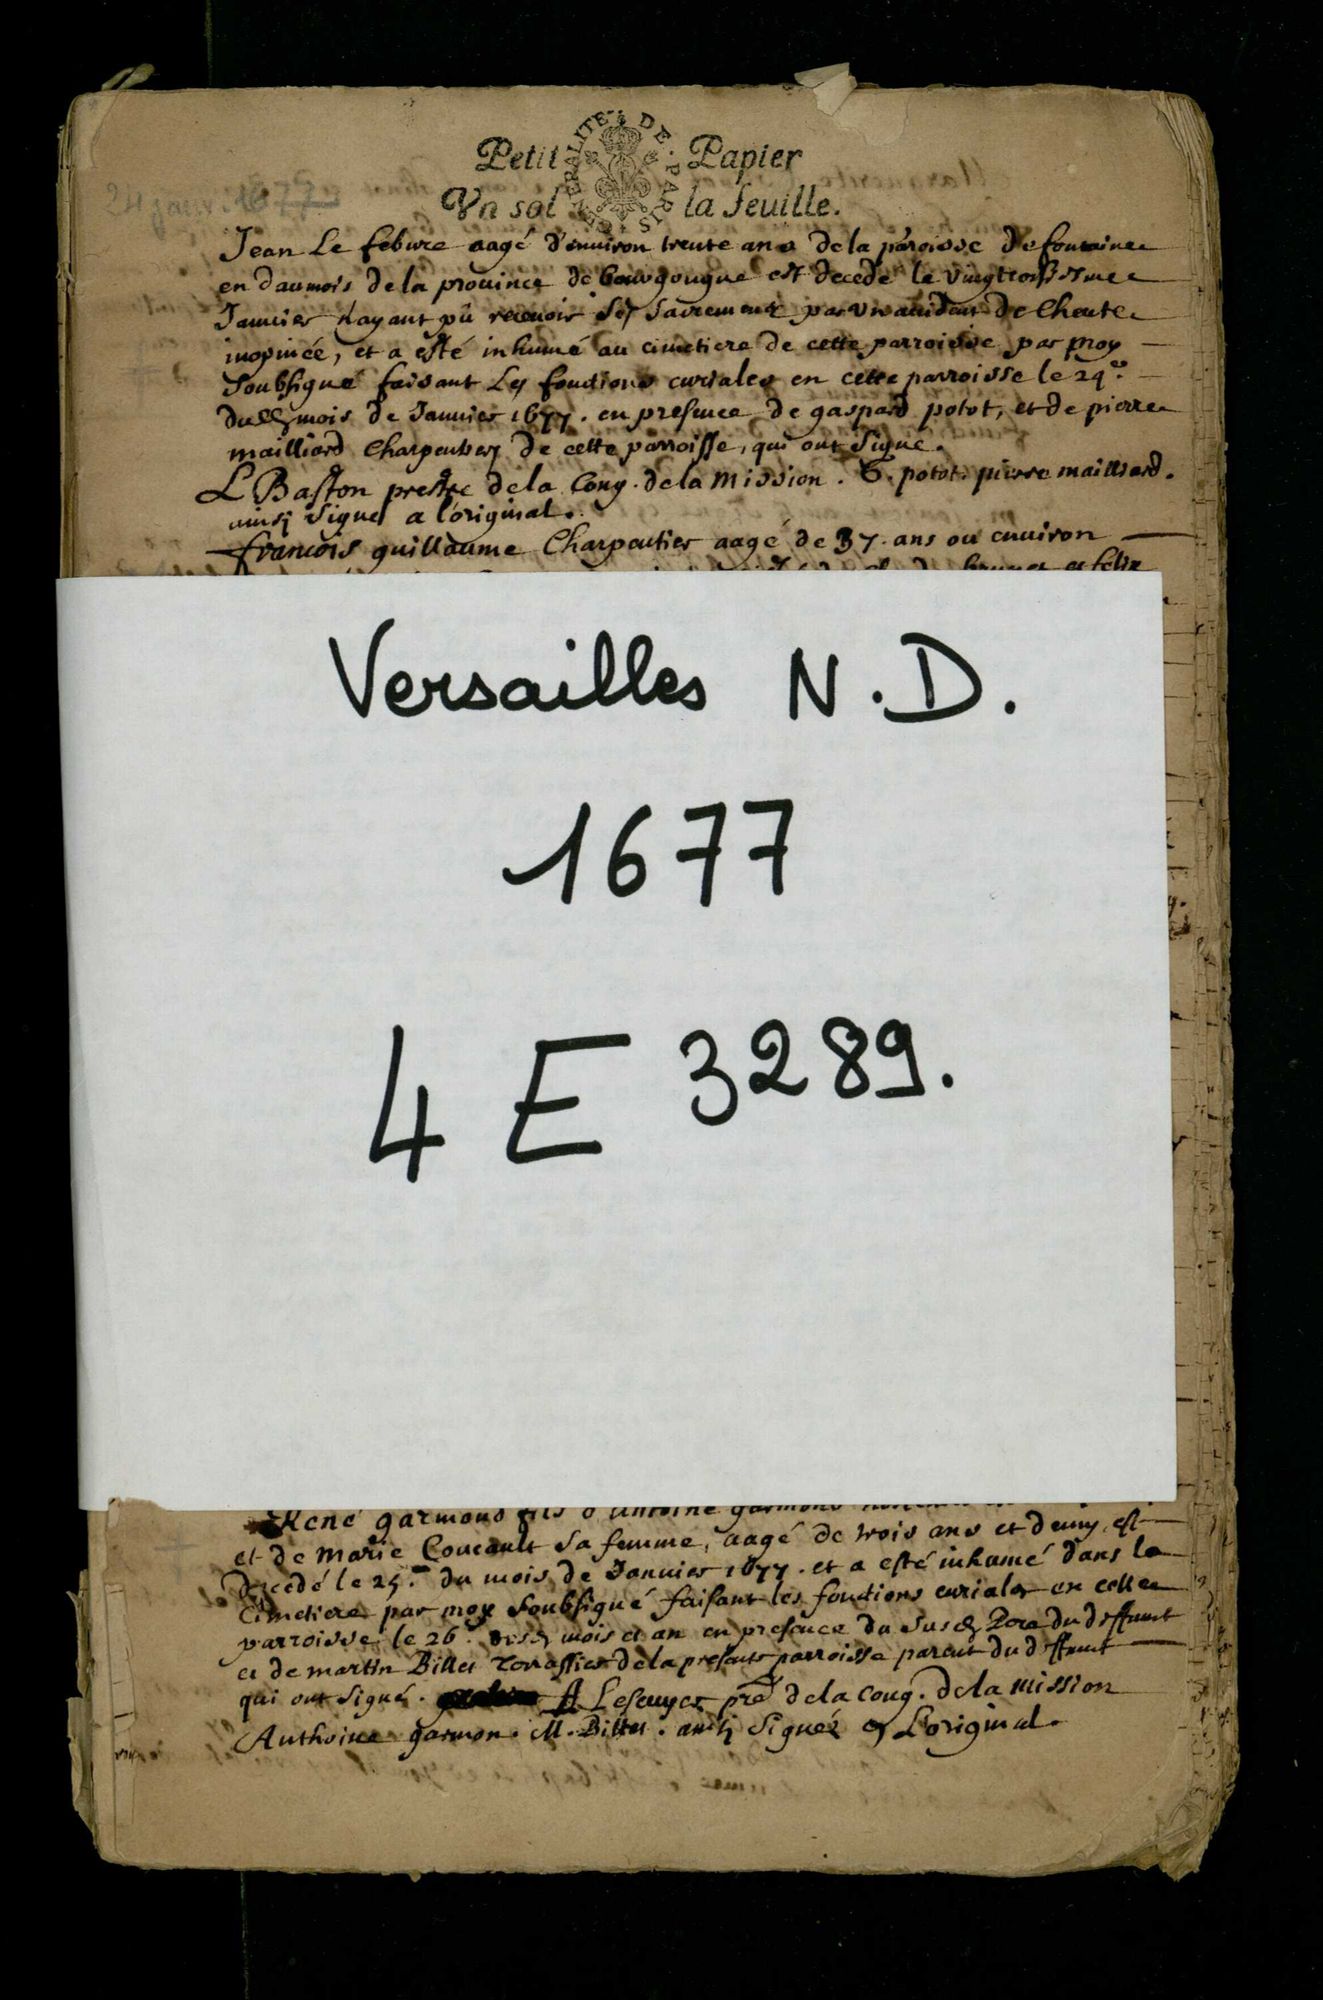 GENERALITE DE PARIS
Petit Papier
Vn sol la feuille.
24 janv. 1677
Jean Le febure aagé d'enuiron trente ans de la paroisse de fontaine
en daumois de la prouince de bourgougne est decedé le vingtroisiesme
Januier n'ayant pû receuoir ses sacremens par vn accident de cheute
inopinée, et a esté inhumé au cimetiere de cette parroisse par moy
soubsigné faisant les fonctions curiales en cette parroisse le 24e
dud mois de Januier 1677. en presence de gaspard potot, et de pierre
mailliard charpentiers de cette parroisse, qui ont signé.
L Baston prestre de la Cong. de la Mission. G. potot. pierre mailliard.
ainsi signé a l'original.
francois guillaume Charpentier aagé de 37. ans ou enuiron
et felix
Versailles N.D.
1677
4 E 3289.
René garmond fils d'antoine garmond
et de Marie Coucault sa femme, aagé de trois ans et demy est
decedé le 25. du mois de Januier 1677. et a esté inhumé dans le
Cimetiere par moy soubsigné faisant les fonctions curiales en cette
parroisse le 26. desd mois et an en presence du susd Pere du deffunt
et de martin Billet Terrassier de la presente parroisse parent du deffunt
qui ont signé. A Lescuyer pre de la cong. de la Mission
Anthoine garmon. M. Billet. ainsi signéz en L'original.